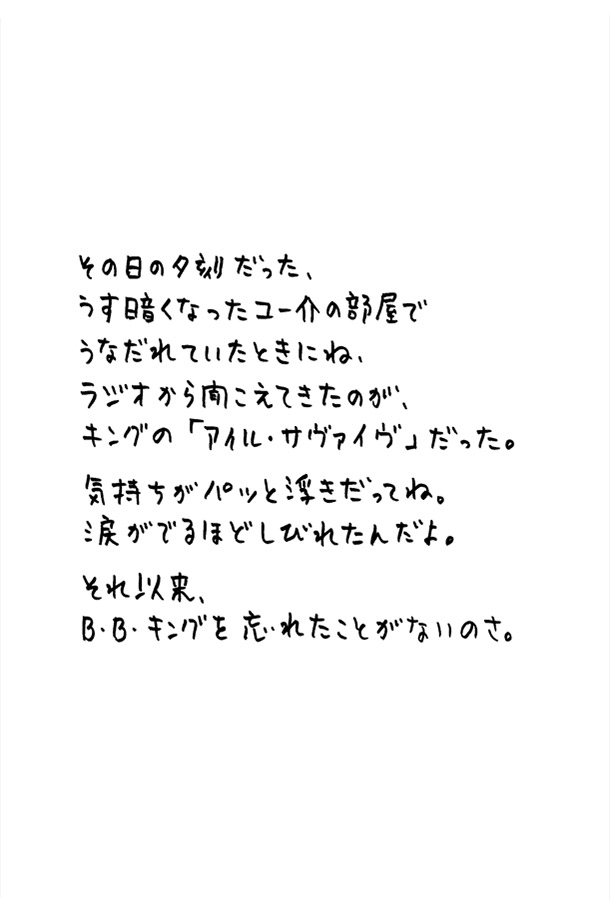 その日の夕刻だった、
うす暗くなったユー介の部屋で
うなだれていたときにね、
ラジオから聞こえてきたのが、
キングの「アイル・サヴァイヴ」だった。
気持ちがパッと浮きだってね。
涙がでるほどしびれたんだよ。
それ以来、
B・B・キングを忘れたことがないのさ。